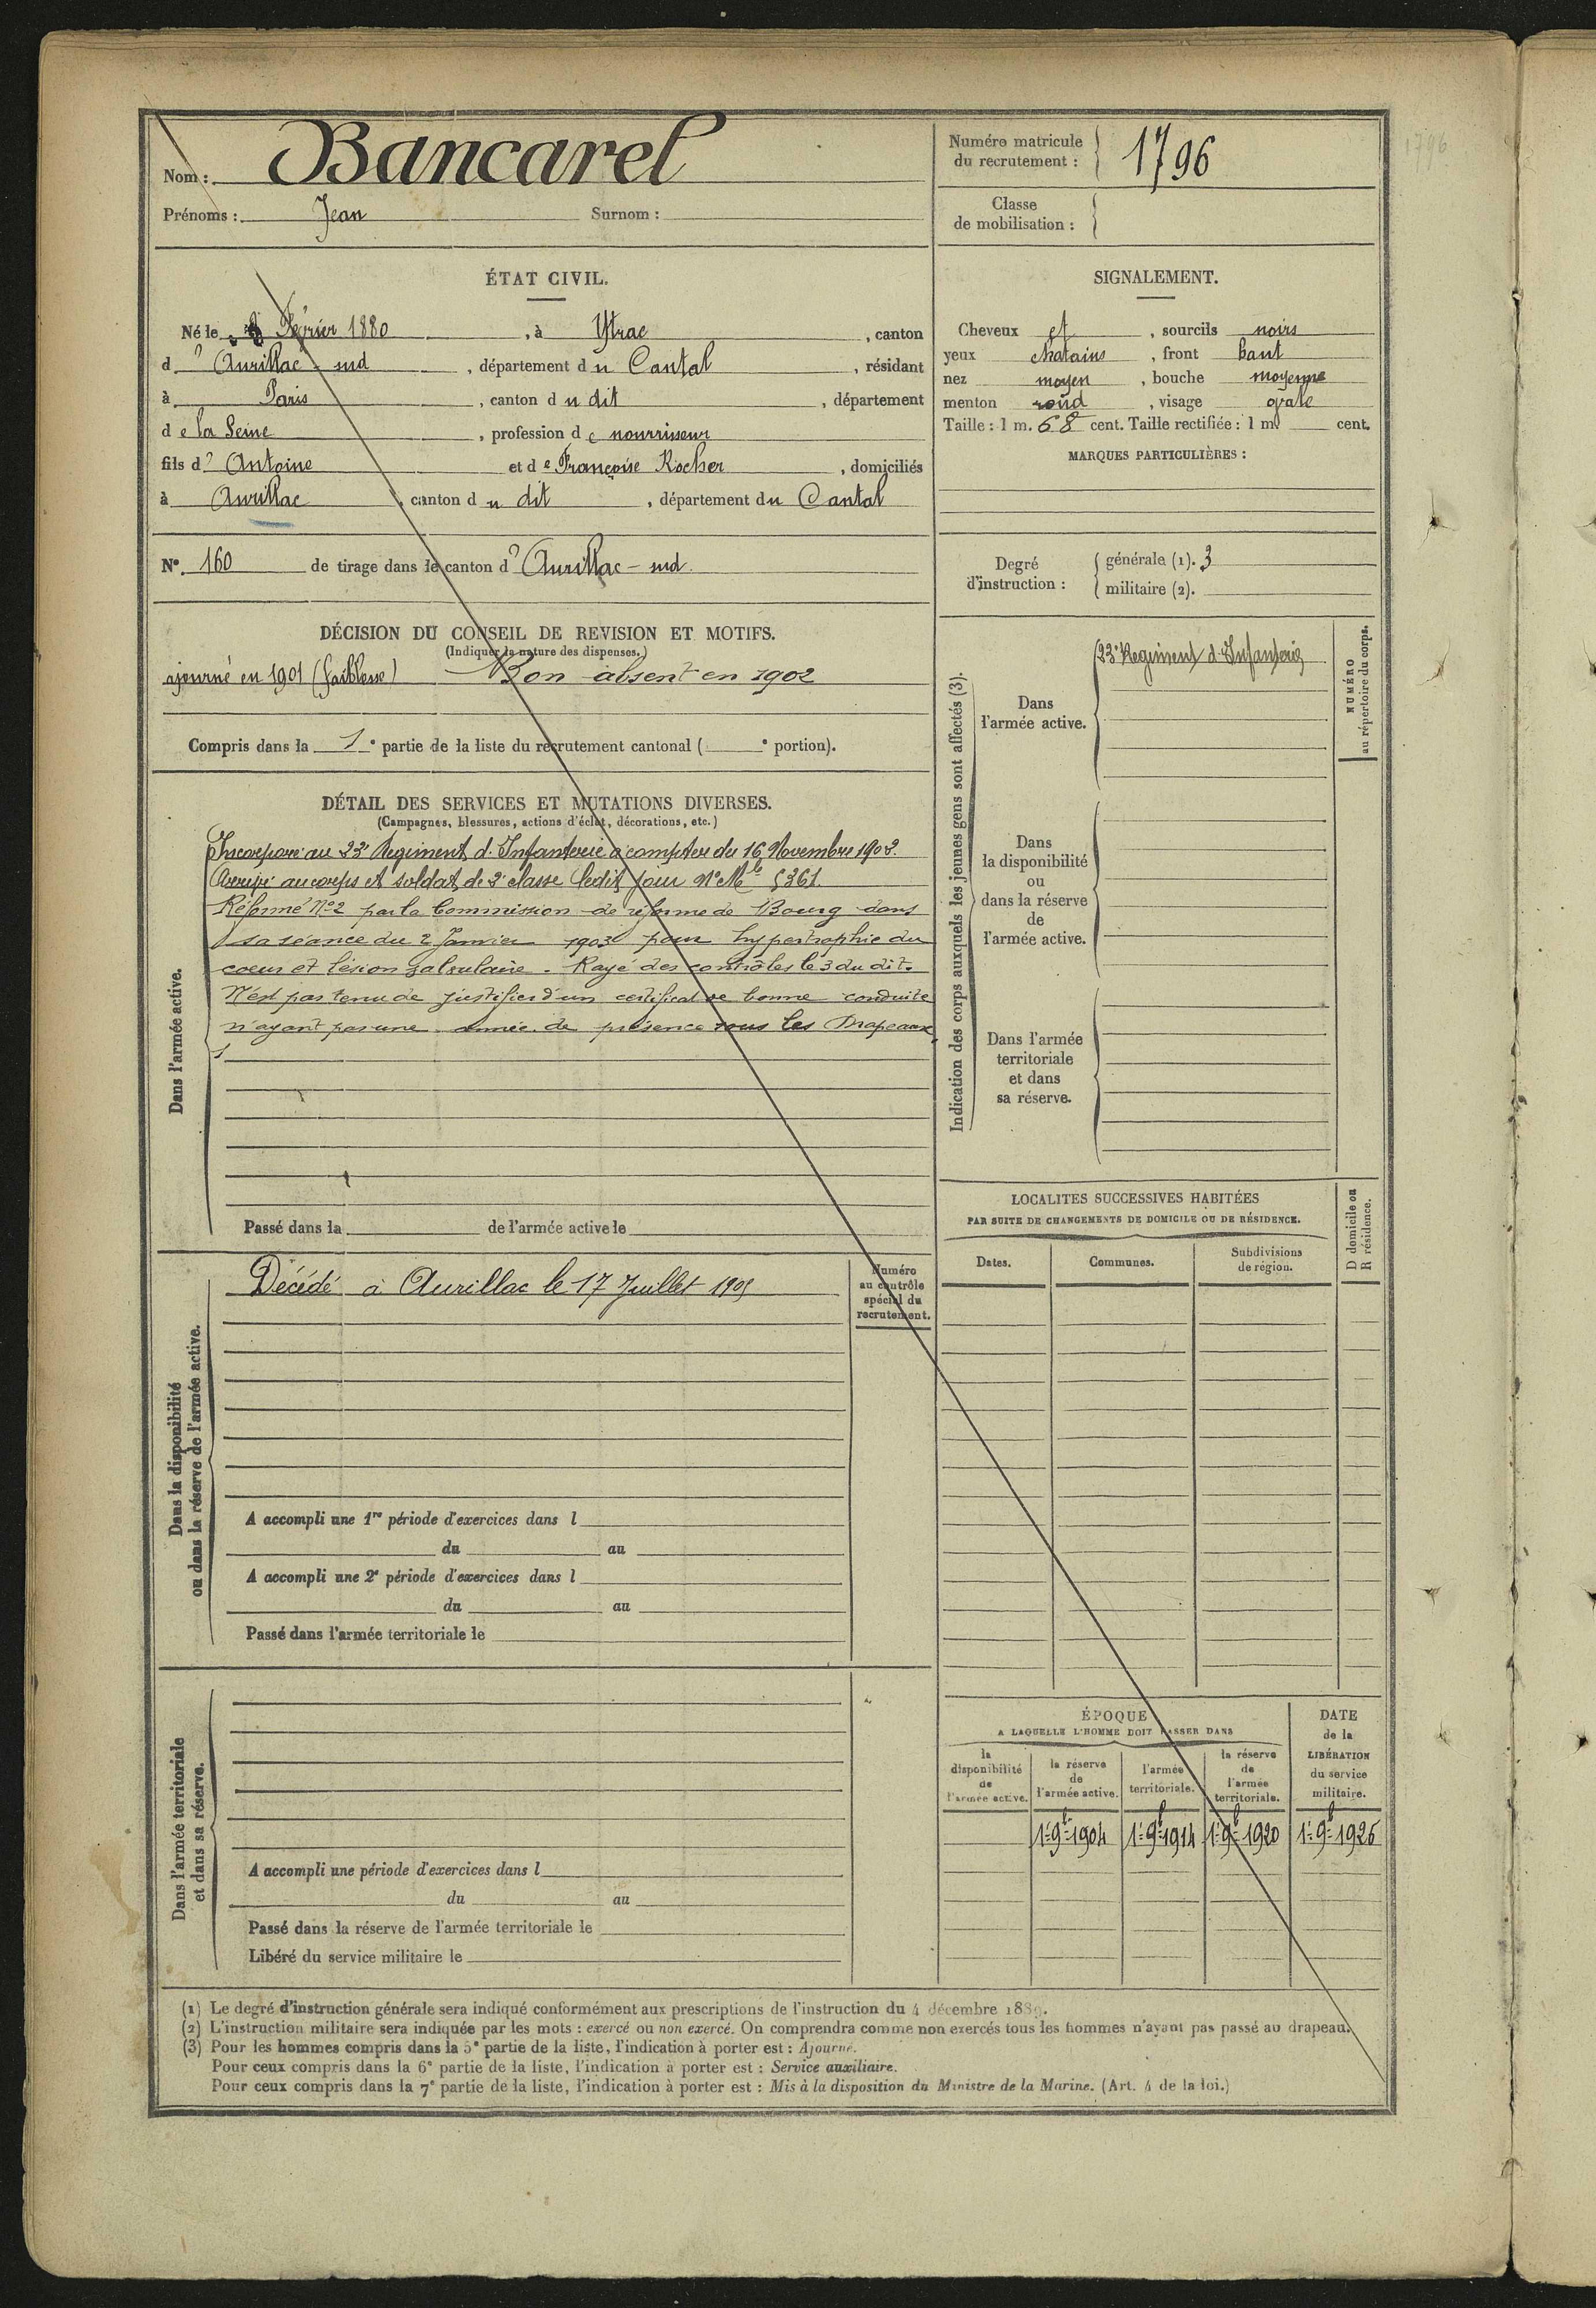 Nom : Bancarel
Prénoms : Jean Surnom :
Numéro matricule
du recrutement : 1796
Classe
de mobilisation :
1796
ÉTAT CIVIL.
Né le Février 1880, à Ytrac, canton
d' Aurillac-sud, département du Cantal, résidant
à Paris, canton du dit, département
de la Seine, profession de nourrisseur
fils d' Antoine et de Françoise Rocher, domiciliés
à Aurillac, canton du dit, département du Cantal
N°. 160 de tirage dans le canton d' Aurillac-sud.
DÉCISION DU CONSEIL DE REVISION ET MOTIFS.
(Indiquer la nature des dispenses.)
ajourné en 1901 (faiblesse) Bon absent en 1902
Compris dans la 1e partie de la liste du recrutement cantonal ( e portion).
DÉTAIL DES SERVICES ET MUTATIONS DIVERSES.
(Campagnes, blessures, actions d'éclat, décorations, etc.)
Dans l'armée active.
Incorporé au 23e Regiment d'Infanterie à compter du 16 Novembre 1902.
Arrivé au corps et soldat de 2e classe ledit jour N° Mle 5361.
Réformé N°2 par la Commission de réforme de Bourg dans
sa séance du 2 Janvier 1903 pour hypertrophie du
coeur et lésion valvulaire. Rayé des contrôles le 3 du dit.
N'est pas tenu de justifier d'un certificat de bonne conduite
n'ayant pas une année de présence sous les Drapeaux
Passé dans la de l'armée active le
Dans la disponibilité
ou dans la réserve de l'armée active.
Décédé à Aurillac le 17 Juillet 1905
Numéro
au contrôle
spécial du
recrutement.
A accompli une 1re période d'exercices dans l
du au
A accompli une 2e période d'exercices dans l
du au
Passé dans l'armée territoriale le
Dans l'armée territoriale
et dans sa réserve.
A accompli une période d'exercices dans l
du au
Passé dans la réserve de l'armée territoriale le
Libéré du service militaire le
SIGNALEMENT.
Cheveux et, sourcils noirs
yeux chatains, front haut
nez moyen, bouche moyenne
menton rond, visage ovale
Taille : 1 m. 68 cent. Taille rectifiée : 1 m. cent.
MARQUES PARTICULIÈRES :
Degré
d'instruction :
générale (1). 3
militaire (2).
Indication des corps auxquels les jeunes gens sont affectés (3).
NUMÉRO
au répertoire du corps.
Dans
l'armée active.
23e Regiment d'Infanterie
Dans
la disponibilité
ou
dans la réserve
de
l'armée active.
Dans l'armée
territoriale
et dans
sa réserve.
LOCALITES SUCCESSIVES HABITÉES
PAR SUITE DE CHANGEMENTS DE DOMICILE OU DE RÉSIDENCE.
D domicile ou
R résidence.
Dates. Communes. Subdivisions
de région.
ÉPOQUE
A LAQUELLE L'HOMME DOIT PASSER DANS
la
disponibilité
de
l'armée active.
la réserve
de
l'armée active.
l'armée
territoriale.
la réserve
de
l'armée
territoriale.
DATE
de la
LIBÉRATION
du service
militaire.
1er 9bre 1904 1er 9bre 1914 1er 9bre 1920 1er 9bre 1926
(1) Le degré d'instruction générale sera indiqué conformément aux prescriptions de l'instruction du 4 décembre 1889.
(2) L'instruction militaire sera indiquée par les mots : exercé ou non exercé. On comprendra comme non exercés tous les hommes n'ayant pas passé au drapeau.
(3) Pour les hommes compris dans la 5e partie de la liste, l'indication à porter est : Ajourné.
Pour ceux compris dans la 6e partie de la liste, l'indication à porter est : Service auxiliaire.
Pour ceux compris dans la 7e partie de la liste, l'indication à porter est : Mis à la disposition du Ministre de la Marine. (Art. 4 de la loi.)